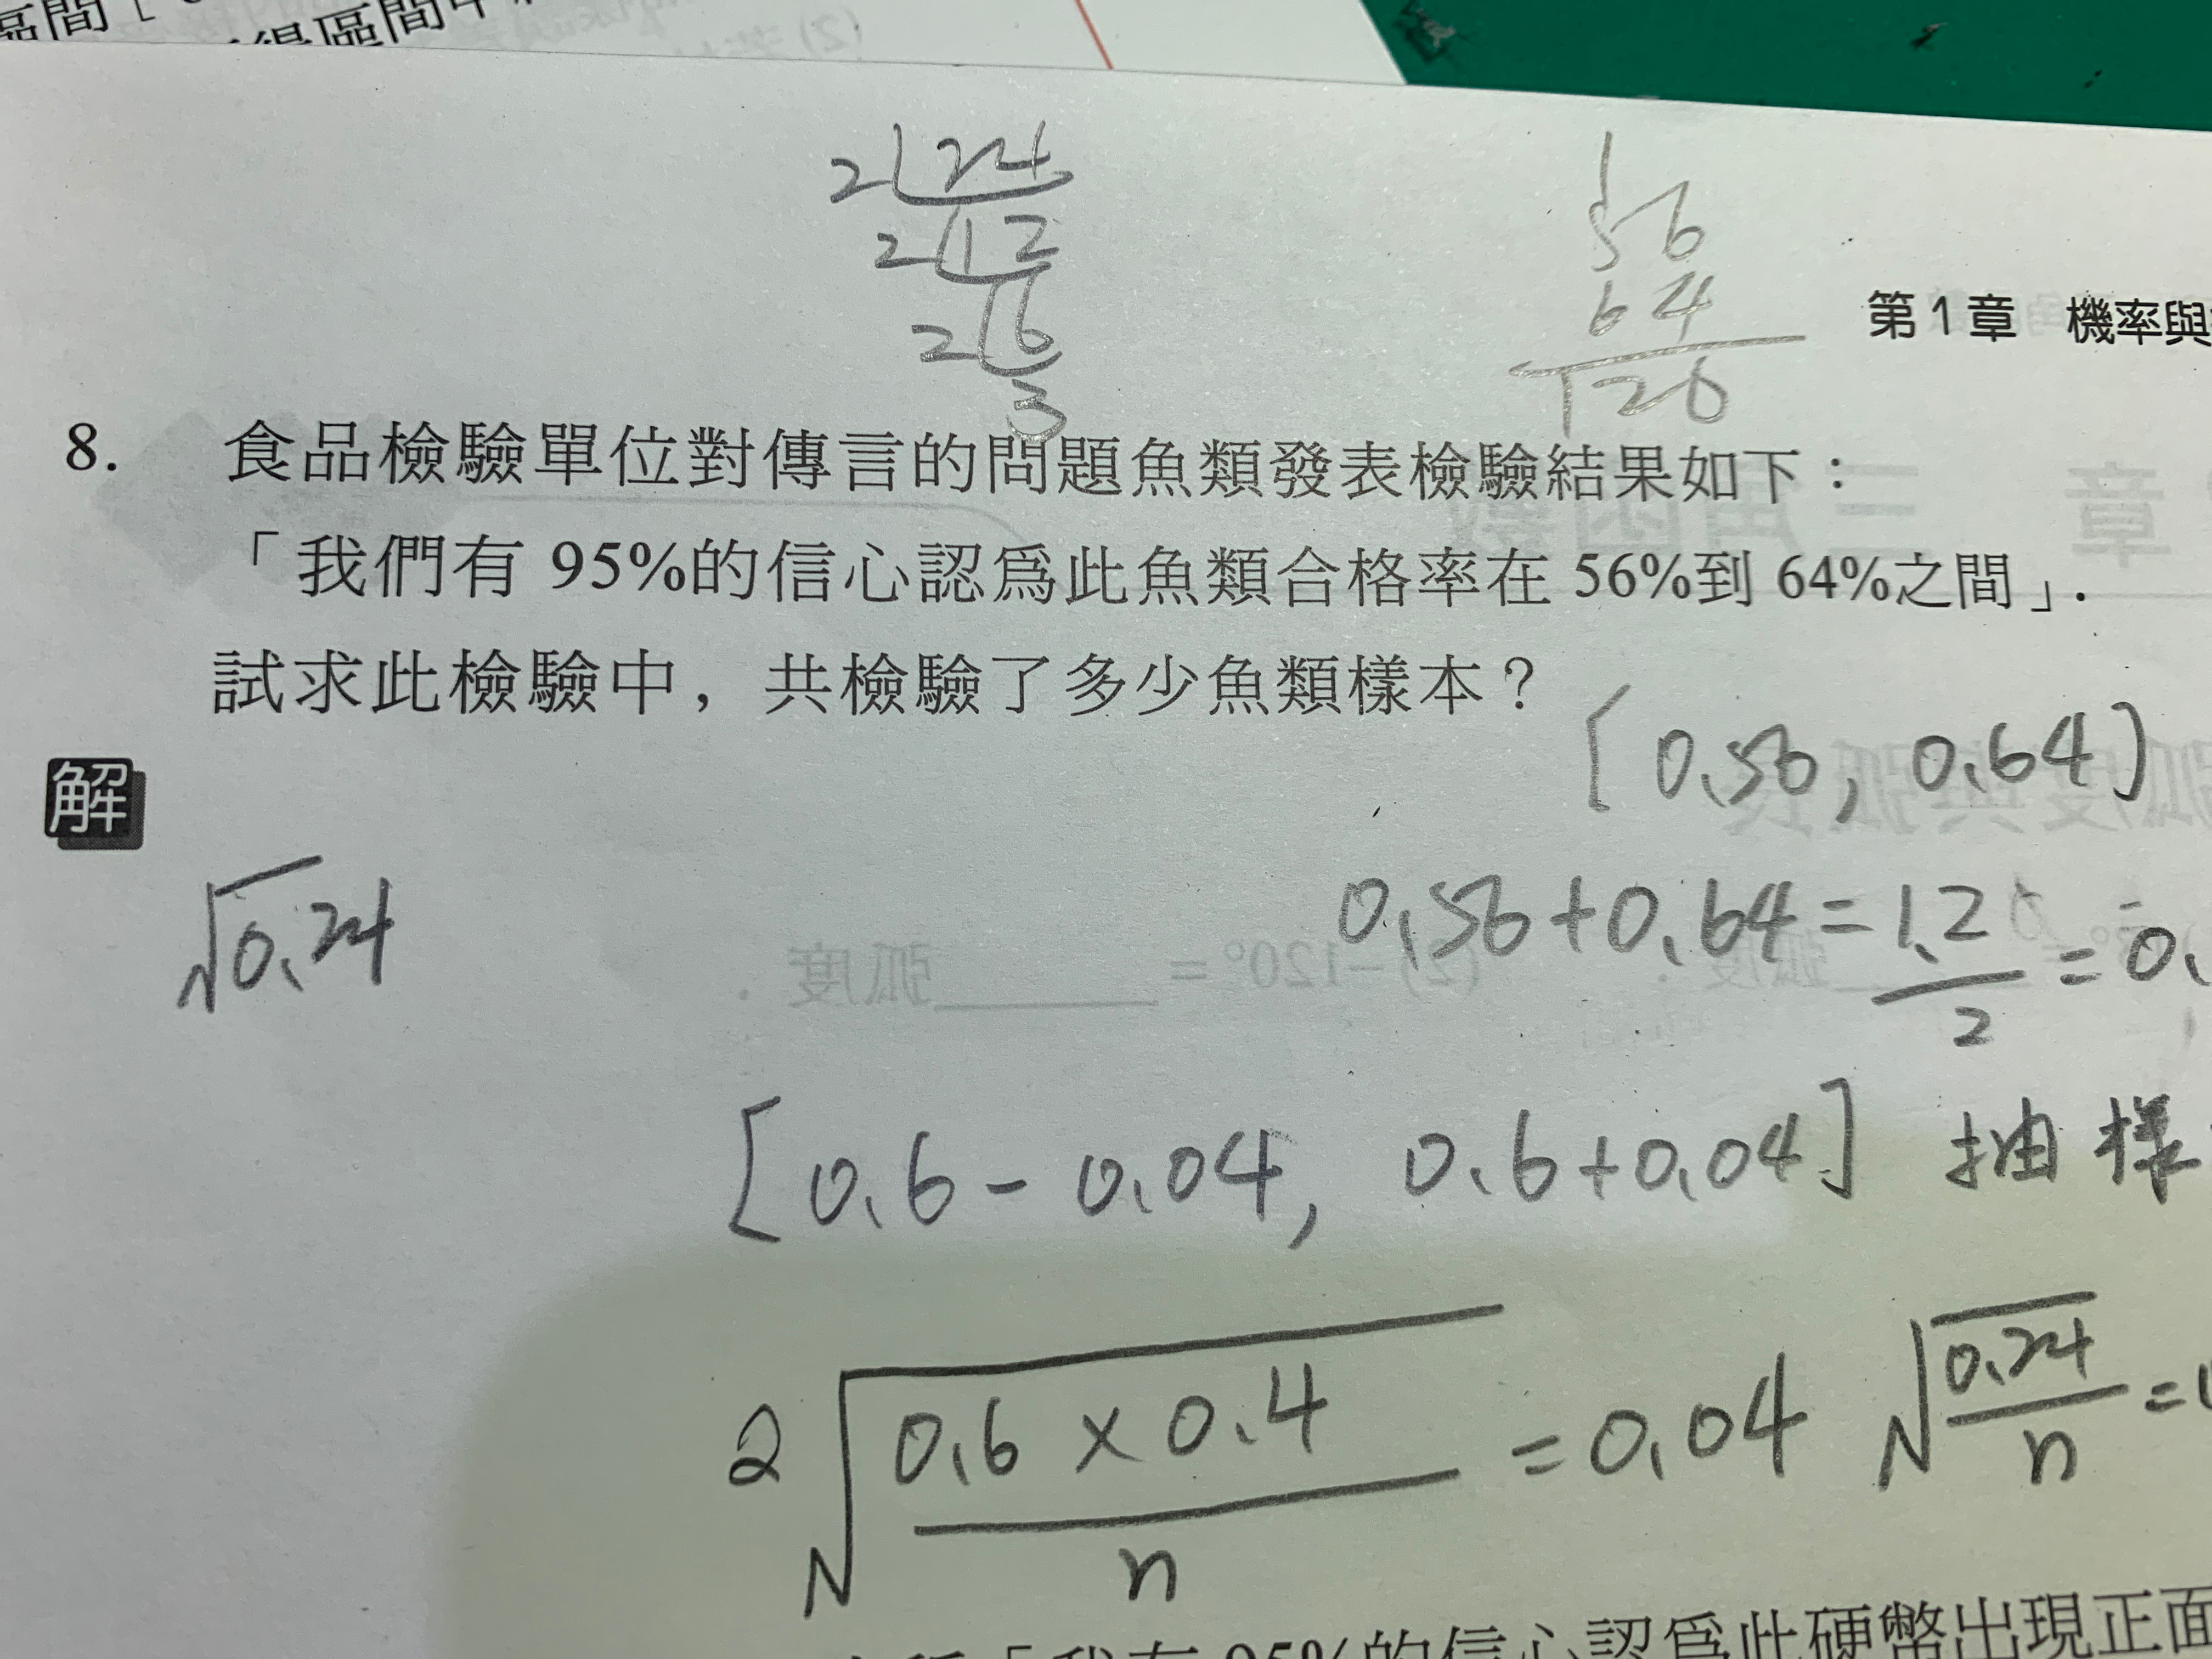 區間
得區間中
2 24
2 12
2 6
3
56
64
120
第1章 機率與
8. 食品檢驗單位對傳言的問題魚類發表檢驗結果如下：
「我們有 95%的信心認爲此魚類合格率在 56%到 64%之間」.
試求此檢驗中，共檢驗了多少魚類樣本？
[0.56, 0.64]
解
√0.24
0.56+0.64=1.2/2=0.
[0.6-0.04, 0.6+0.04] 抽樣
2√(0.6×0.4/n)=0.04 √(0.24/n)=
「我有 95%的信心認爲此硬幣出現正面